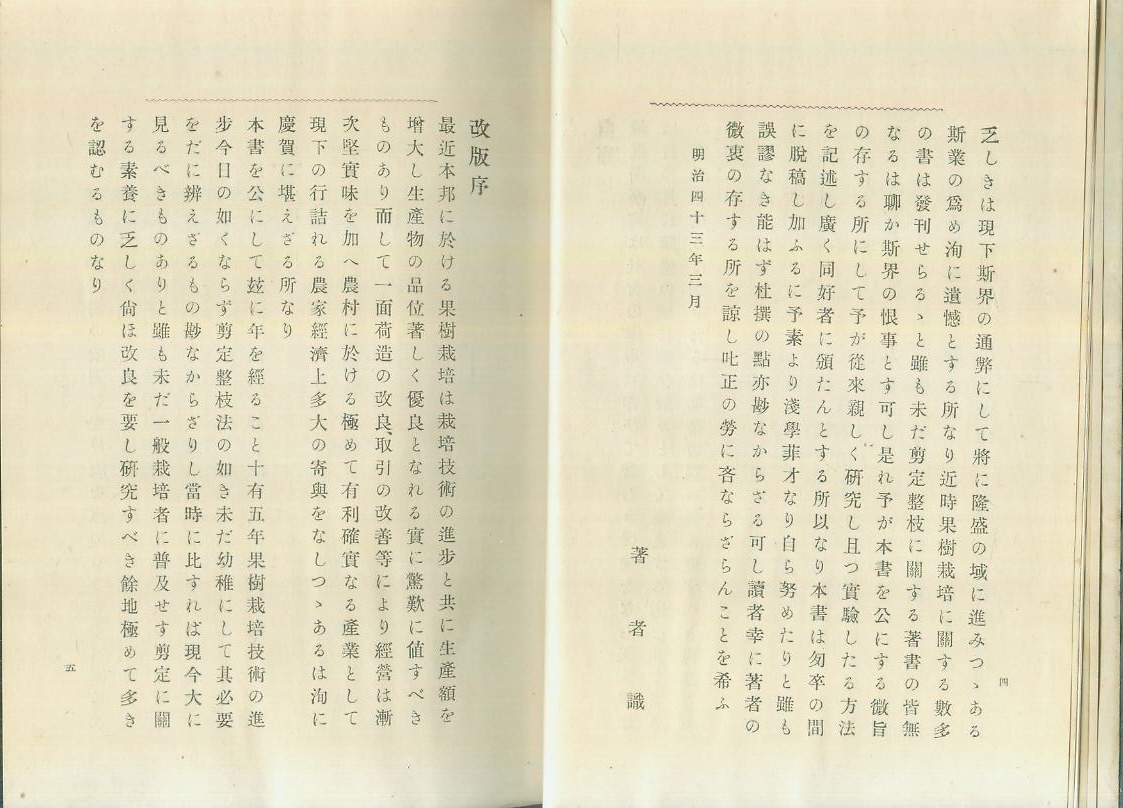 乏しきは現下斯界の通弊にして將に隆盛の域に進みつゝある
斯業の爲め洵に遺憾とする所なり近時果樹栽培に關する數多
の書は發刊せらるゝと雖も未だ剪定整枝に關する著書の皆無
なるは聊か斯界の恨事とす可し是れ予が本書を公にする微旨
の存する所にして予が從來親しく研究し且つ實驗したる方法
を記述し廣く同好者に頒たんとする所以なり本書は匆卒の間
に脫稿し加ふるに予素より淺學菲才なり自ら努めたりと雖も
誤謬なき能はず杜撰の點亦尠なからざる可し讀者幸に著者の
微衷の存する所を諒し叱正の勞に吝ならざらんことを希ふ
明治四十三年三月
著者識
四
改版序
最近本邦に於ける果樹栽培は栽培技術の進步と共に生產額を
增大し生產物の品位著しく優良となれる實に驚歎に値すべき
ものあり而して一面荷造の改良取引の改善等により經營は漸
次堅實味を加へ農村に於ける極めて有利確實なる產業として
現下の行詰れる農家經濟上多大の寄與をなしつゝあるは洵に
慶賀に堪えざる所なり
本書を公にして玆に年を經ること十有五年果樹栽培技術の進
步今日の如くならず剪定整枝法の如き未だ幼稚にして其必要
をだに辨えざるもの尠なからざりし當時に比すれば現今大に
見るべきものありと雖も未だ一般栽培者に普及せす剪定に關
する素養に乏しく尙ほ改良を要し研究すべき餘地極めて多き
を認むるものなり
五